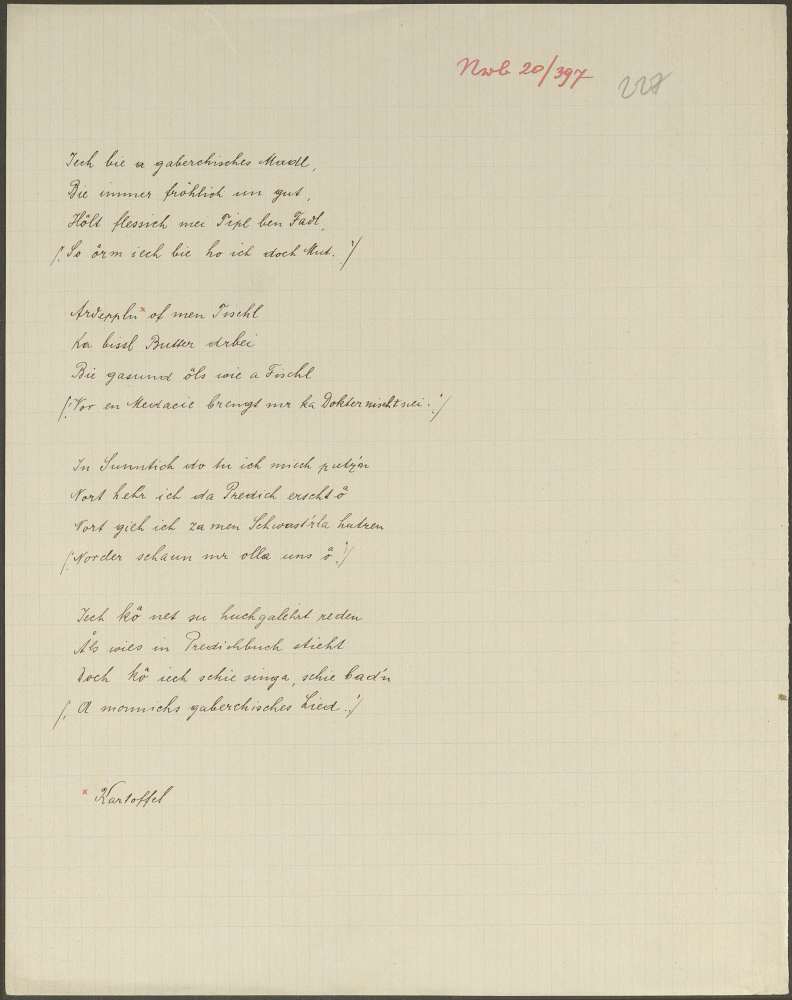 Nwb 20/397 228
Iech bie a gaberchisches Madl,
Bie immer fröhlich un gut,
Hölt flessich mei Tipl ben Fadl,
/: So örm iech bie ho ich doch Mut. :/
Arderpln* of men Tischl
Ka bissl Butter drbei
Bie gasund öls wie a Fischl
/: Vor en Medacie brengt mr ka Dokter nischt nei. :/
In Sunntich do tu ich miech putz'n
Nort hehr ich da Predich erscht ö
Nort gieh ich za men Schwast'rla hutzen
/: Norder schaun mr olla uns ö. :/
Iech kö net su huchgalehrt reden
Äls wies in Predichbuch stieht
Doch kö iech schie singa, schie bad'n
/: A monnichs gaberchisches Lied. :/
* Kartoffel